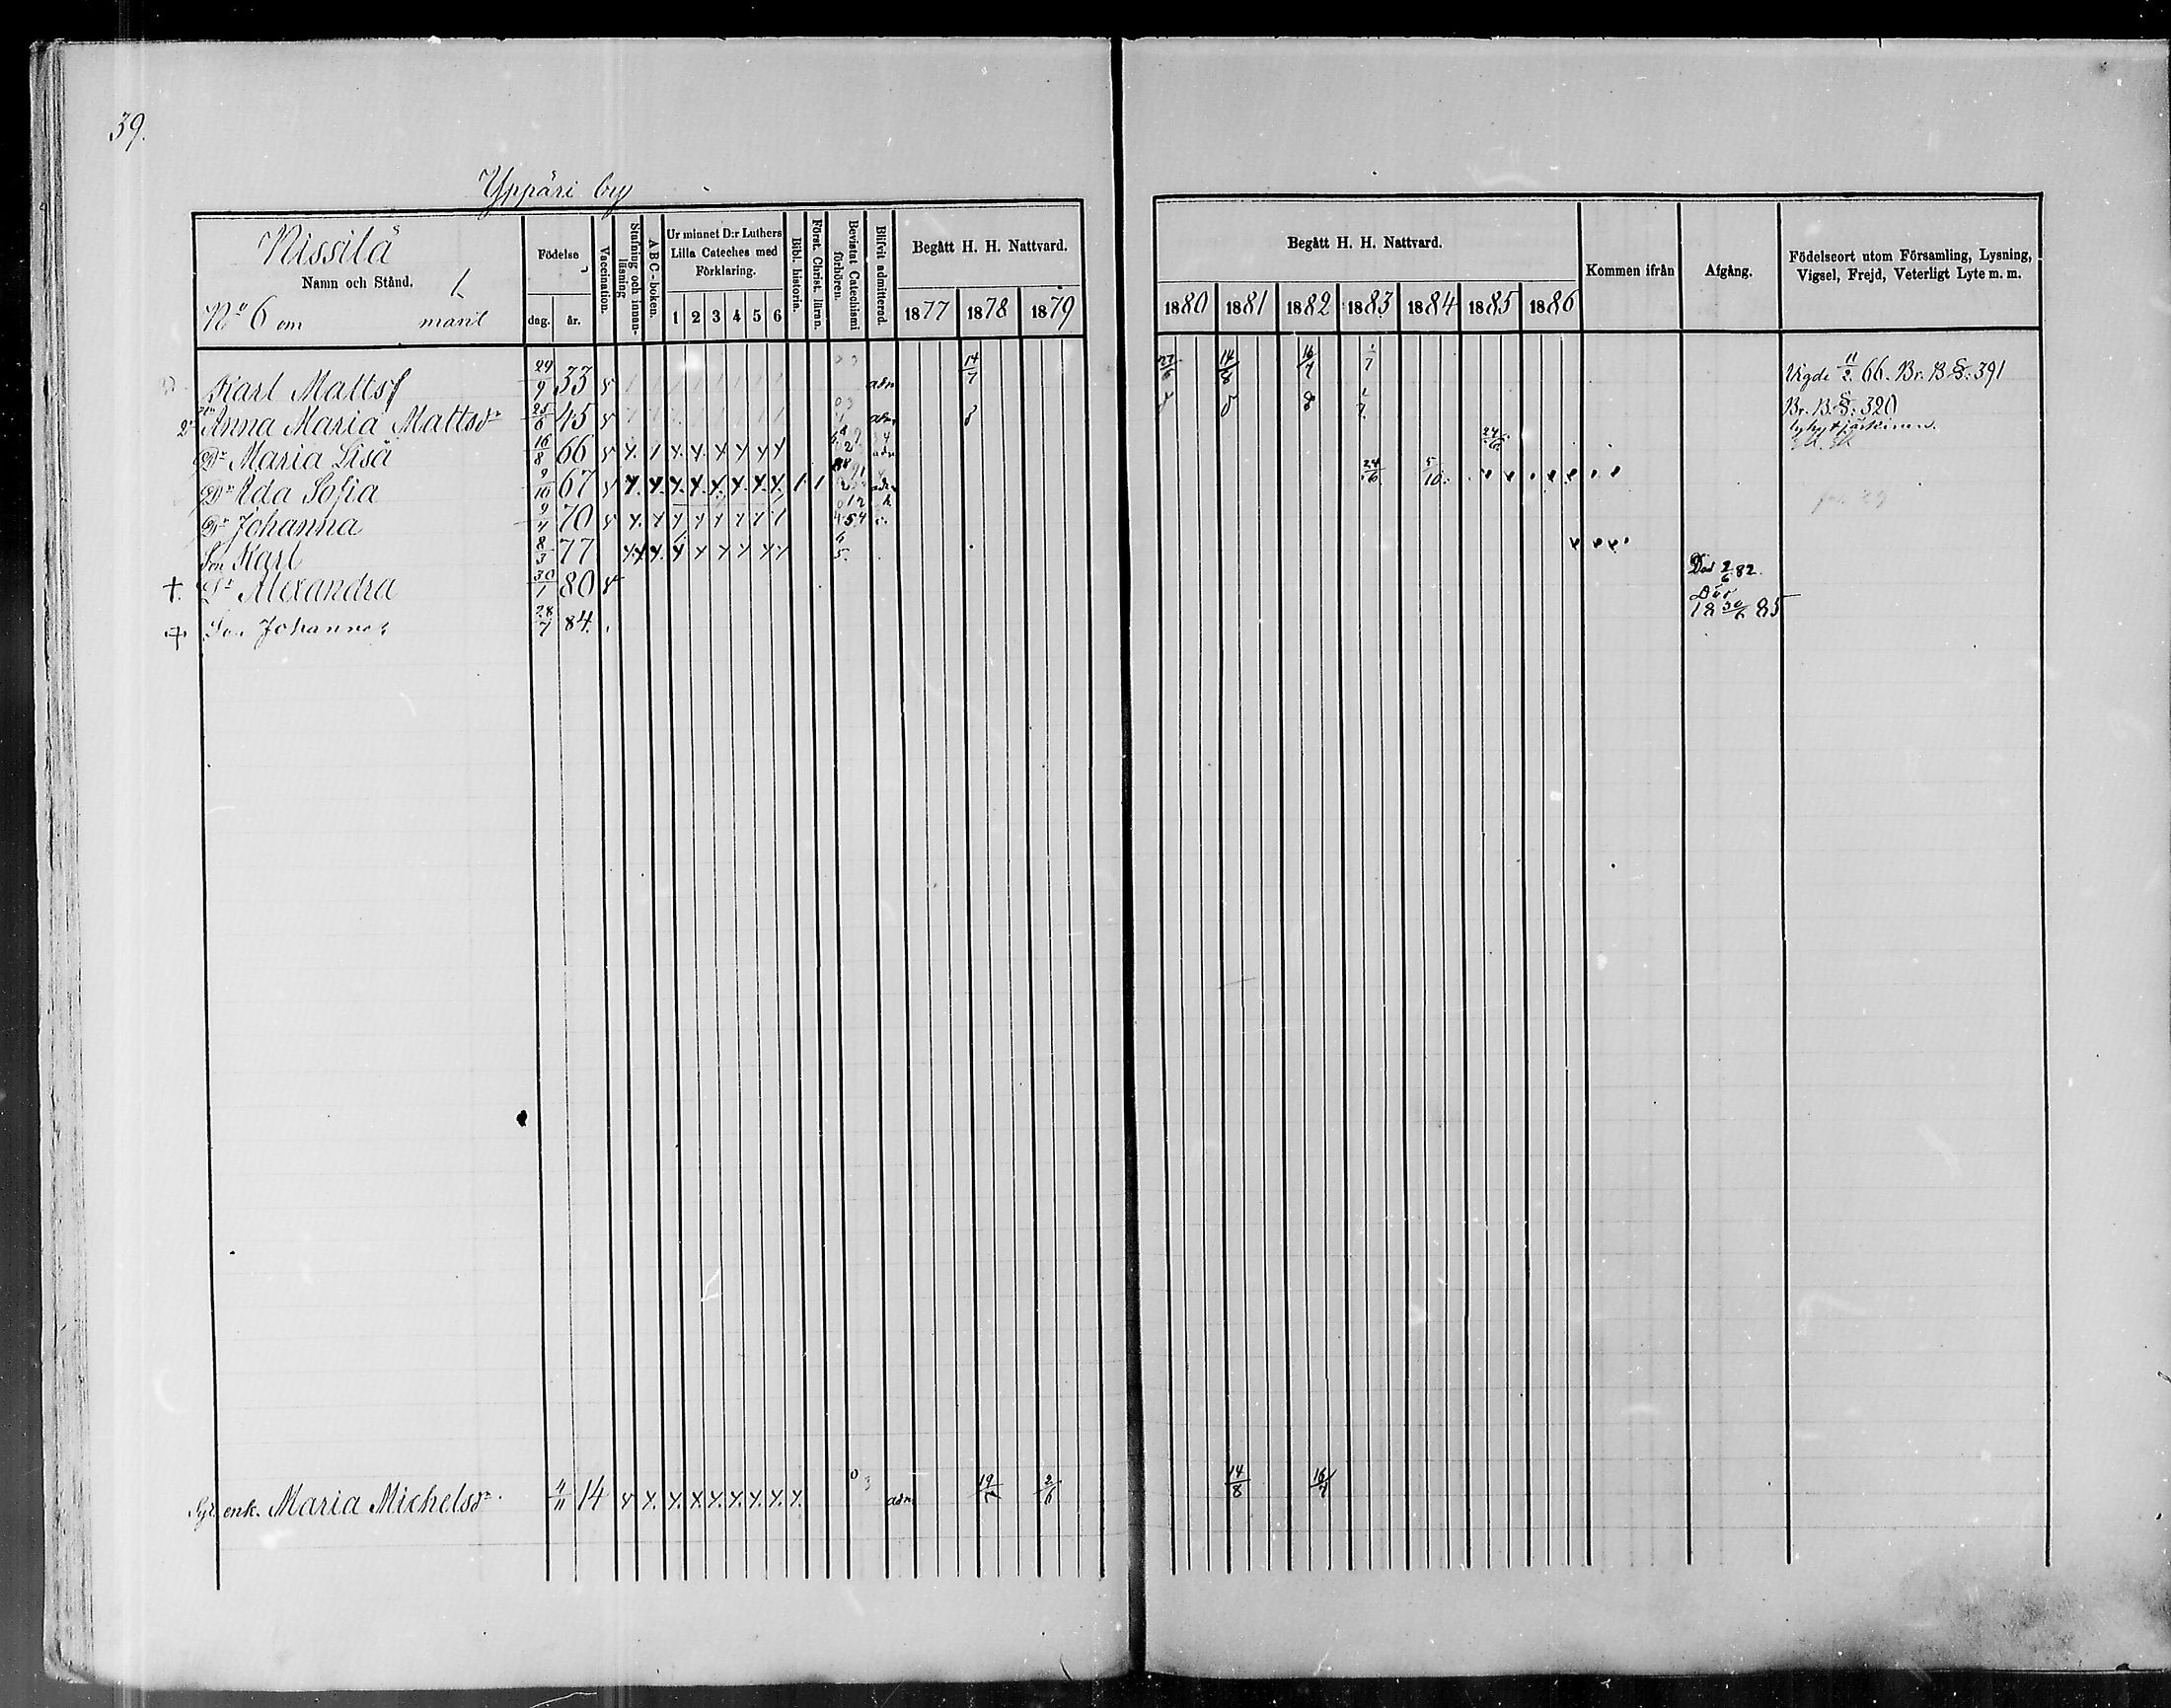 39.
Yppäri by
Nissilä
Namn och Stånd.
No 6 om mantl
Födelse
dag. år.
Vaccination.
Stafning och innan-läsning
ABC-boken.
Ur minnet D:r Luthers Lilla Cateches med Förklaring.
1 2 3 4 5 6
Bibl. historia.
Först. Christ. läran.
Bevistat Catechismi förhören.
Blifvit admitterad.
Begått H. H. Nattvard.
1877 1878 1879
Begått H. H. Nattvard.
1880 1881 1882 1883 1884 1885 1886
Kommen ifrån
Afgång.
Födelseort utom Församling, Lysning, Vigsel, Frejd, Veterligt Lyte m. m.
Karl Mattsf 29/9 33 v adm 14/7 27/6 14/8 16/7 1/7 Vigde 11/2 66. Br. B. §: 391
Anna Maria Mattsdr 25/6 45 v adm Br. B. §: 320
Dr Maria Lisa 16/8 66 v 24/6
Dr Ida Sofia 9/10 67 v 24/6 5/10
Dr Johanna 9/4 70 v
Son Karl 8/3 77
† Dr Alexandra 30/1 80 v Död 2/6 82.
Son Johannes 28/7 84. Död 18 30/6 85
enk. Maria Michelsdr 4/11 14 adm 2/6 14/8 16/7